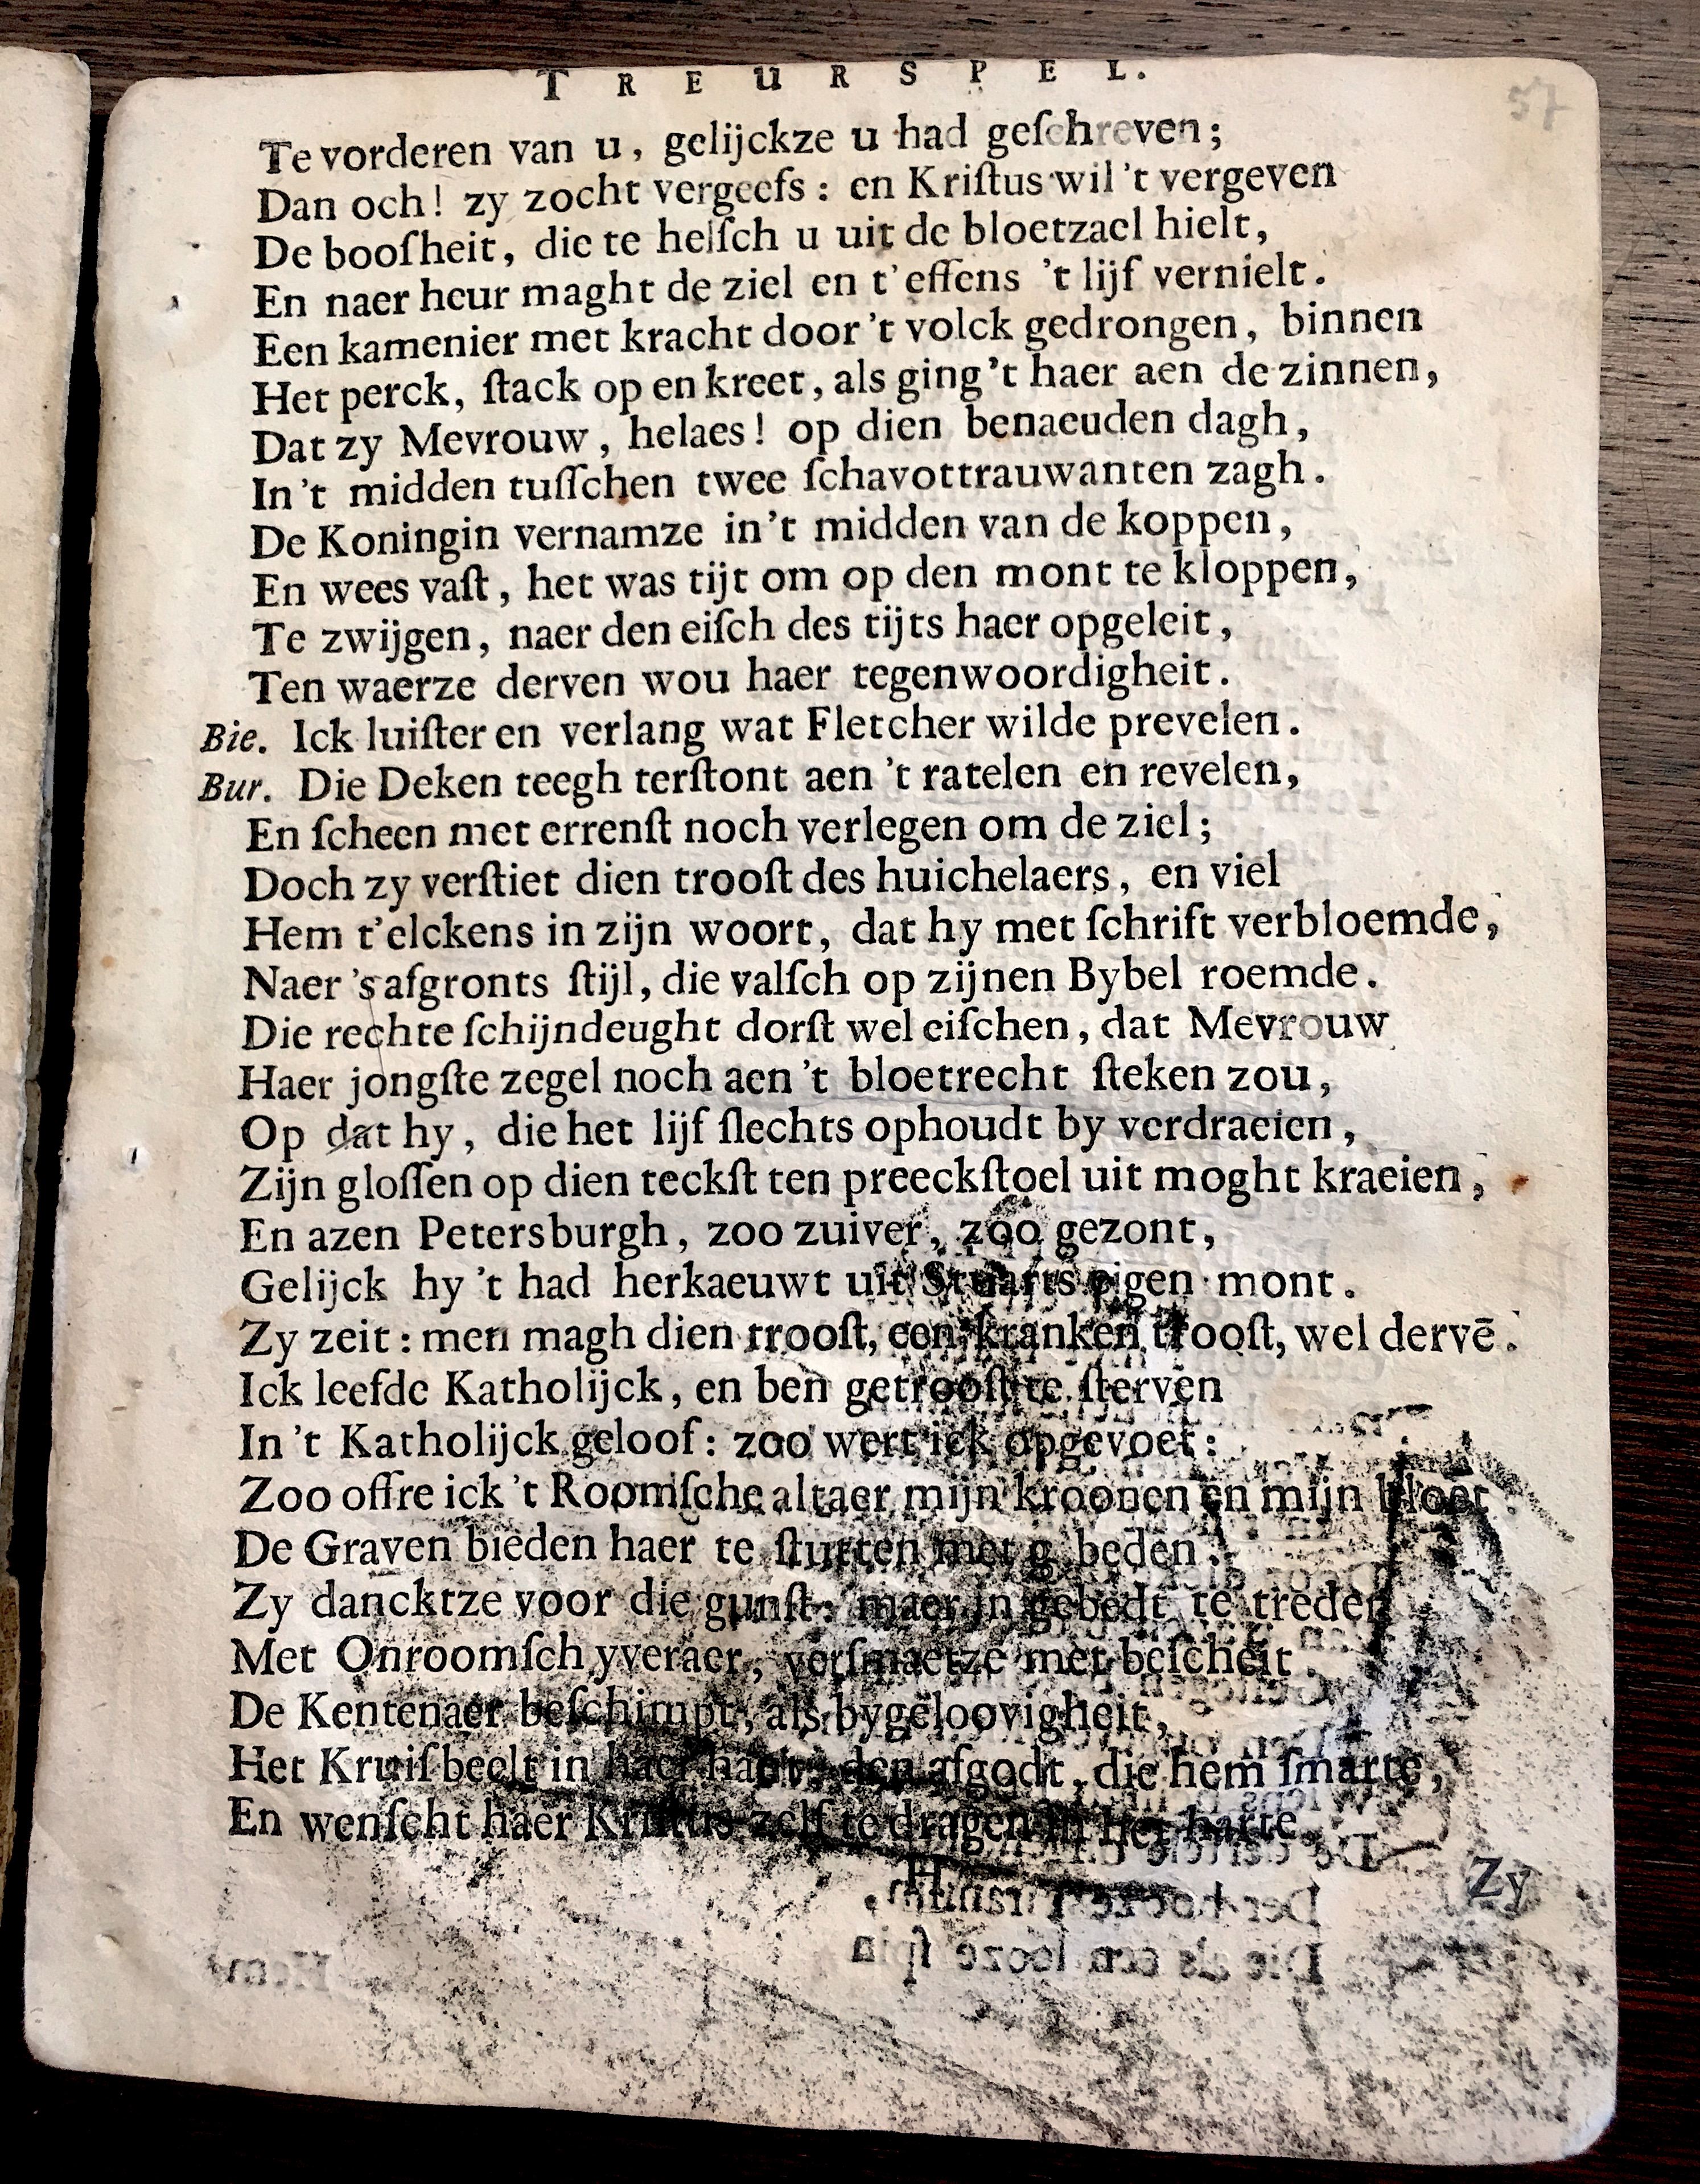 TREURSPEL.
57
Te vorderen van u, gelijckze u had geſchreven;
Dan och! zy zocht vergeefs: en Kriſtus wil 't vergeven
De booſheit, die te helſch u uit de bloetzael hielt,
En naer heur maght de ziel en t'effens 't lijf vernielt.
Een kamenier met kracht door 't volck gedrongen, binnen
Het perck, ſtack op en kreet, als ging 't haer aen de zinnen,
Dat zy Mevrouw, helaes! op dien benaeuden dagh,
In 't midden tuſſchen twee ſchavottrauwanten zagh.
De Koningin vernamze in 't midden van de koppen,
En wees vaſt, het was tijt om op den mont te kloppen,
Te zwijgen, naer den eiſch des tijts haer opgeleit,
Ten waerze derven wou haer tegenwoordigheit.
Bie. Ick luiſter en verlang wat Fletcher wilde prevelen.
Bur. Die Deken teegh terſtont aen 't ratelen en revelen,
En ſcheen met errenſt noch verlegen om de ziel;
Doch zy verſtiet dien trooſt des huichelaers, en viel
Hem t'elckens in zijn woort, dat hy met ſchrift verbloemde,
Naer 's afgronts ſtijl, die valſch op zijnen Bybel roemde.
Die rechte ſchijndeught dorſt wel eiſchen, dat Mevrouw
Haer jongſte zegel noch aen 't bloetrecht ſteken zou,
Op dat hy, die het lijf ſlechts ophoudt by verdraeien,
Zijn gloſſen op dien teckſt ten preeckſtoel uit moght kraeien,
En azen Petersburgh, zoo zuiver, zoo gezont,
Gelijck hy 't had herkaeuwt uit Stuarts eigen mont.
Zy zeit: men magh dien trooſt, een kranken trooſt, wel dervē.
Ick leefde Katholijck, en ben getrooſt te ſterven
In 't Katholijck geloof: zoo wert ick opgevoet:
Zoo offre ick 't Roomſche altaer mijn kroonen en mijn bloet.
De Graven bieden haer te ſtutten met g beden.
Zy dancktze voor die gunſt: maer in gebedt te treden
Met Onroomſch yveraer, verſmaetze met beſcheit.
De Kentenaer beſchimpt, als bygeloovigheit,
Het Kruiſbeelt in haer hant, den afgodt, die hem ſmarte,
En wenſcht haer Kriſtus zelf te dragen in het harte.
H
Zy